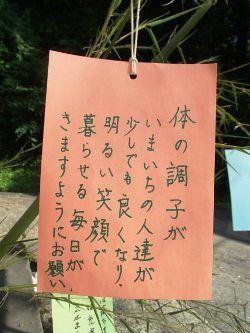 体の調子が
いまいちの人達が
少しでも良くなり、
明るい笑顔で
暮らせる毎日が
きますようにお願い